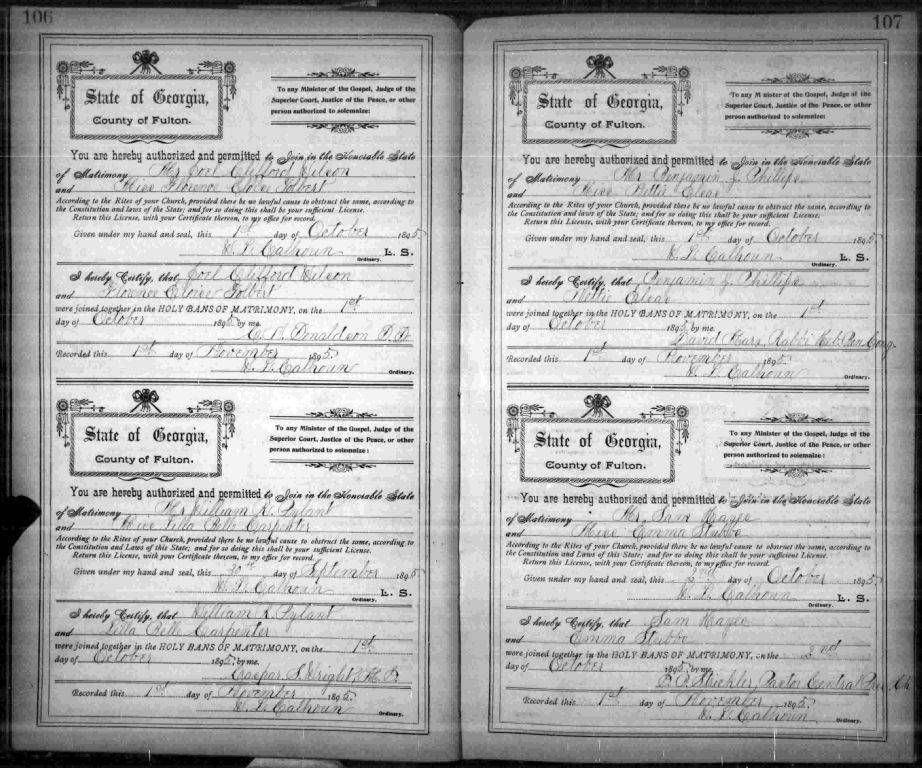 106
State of Georgia,
County of Fulton.
To any Minister of the Gospel, Judge of the
Superior Court, Justice of the Peace, or other
person authorized to solemnize:
You are hereby authorized and permitted to Join in the Honorable State
of Matrimony Mr Joel Clifford Wilson
and Miss Florence Eloise Tolbert
According to the Rites of your Church, provided there be no lawful cause to obstruct the same, according to
the Constitution and laws of the State; and for so doing this shall be your sufficient License.
Return this License, with your Certificate thereon, to my office for record.
Given under my hand and seal, this 1st day of October 1895.
W. L. Calhoun L. S.
Ordinary.
I hereby Certify, that Joel Clifford Wilson
and Florence Eloise Tolbert
were joined together in the HOLY BANS OF MATRIMONY, on the 1st
day of October 1895, by me.
Donaldson
Recorded this 1st day of November 1895.
W. L. Calhoun
Ordinary.
State of Georgia,
County of Fulton.
To any Minister of the Gospel, Judge of the
Superior Court, Justice of the Peace, or other
person authorized to solemnize:
You are hereby authorized and permitted to Join in the Honorable State
of Matrimony Mr William K. Sylant
and Miss Lilla Belle Carpenter
According to the Rites of your Church, provided there be no lawful cause to obstruct the same, according to
the Constitution and Laws of this State; and for so doing this shall be your sufficient License.
Return this License, with your Certificate thereon, to my office for record.
Given under my hand and seal, this 30th day of September 1895
W. L. Calhoun L. S.
Ordinary.
I hereby Certify, that William K. Sylant
and Lilla Belle Carpenter
were joined together in the HOLY BANS OF MATRIMONY, on the 1st
day of October 1895, by me.
Wright
Recorded this 1st day of November 1895.
W. L. Calhoun
Ordinary.
107
State of Georgia,
County of Fulton.
To any Minister of the Gospel, Judge of the
Superior Court, Justice of the Peace, or other
person authorized to solemnize:
You are hereby authorized and permitted to Join in the Honorable State
of Matrimony Mr Benjamin J. Phillips
and Miss Nettie Elsas
According to the Rites of your Church, provided there be no lawful cause to obstruct the same, according to
the Constitution and laws of this State; and for so doing this shall be your sufficient License.
Return this License, with your Certificate thereon, to my office for record.
Given under my hand and seal, this 1st day of October 1895.
W. L. Calhoun L. S.
Ordinary.
I hereby Certify, that Benjamin J. Phillips
and Nettie Elsas
were joined together in the HOLY BANS OF MATRIMONY, on the 1st
day of October 1895, by me.
David Marx, Rabbi Heb. Ben. Cong.
Recorded this 1st day of November 1895.
W. L. Calhoun
Ordinary.
State of Georgia,
County of Fulton.
To any Minister of the Gospel, Judge of the
Superior Court, Justice of the Peace, or other
person authorized to solemnize:
You are hereby authorized and permitted to Join in the Honorable State
of Matrimony Mr. Sam Hayes
and Miss Emma Stubbs
According to the Rites of your Church, provided there be no lawful cause to obstruct the same, according to
the Constitution and Laws of this State; and for so doing this shall be your sufficient License.
Return this License, with your Certificate thereon, to my office for record.
Given under my hand and seal, this 2nd day of October 1895.
W. L. Calhoun L. S.
Ordinary.
I hereby Certify, that Sam Hayes
and Emma Stubbs
were joined together in the HOLY BANS OF MATRIMONY, on the 2nd
day of October 1895, by me.
Strickler, Pastor Central Pres. Ch.
Recorded this 1st day of November 1895.
W. L. Calhoun
Ordinary.